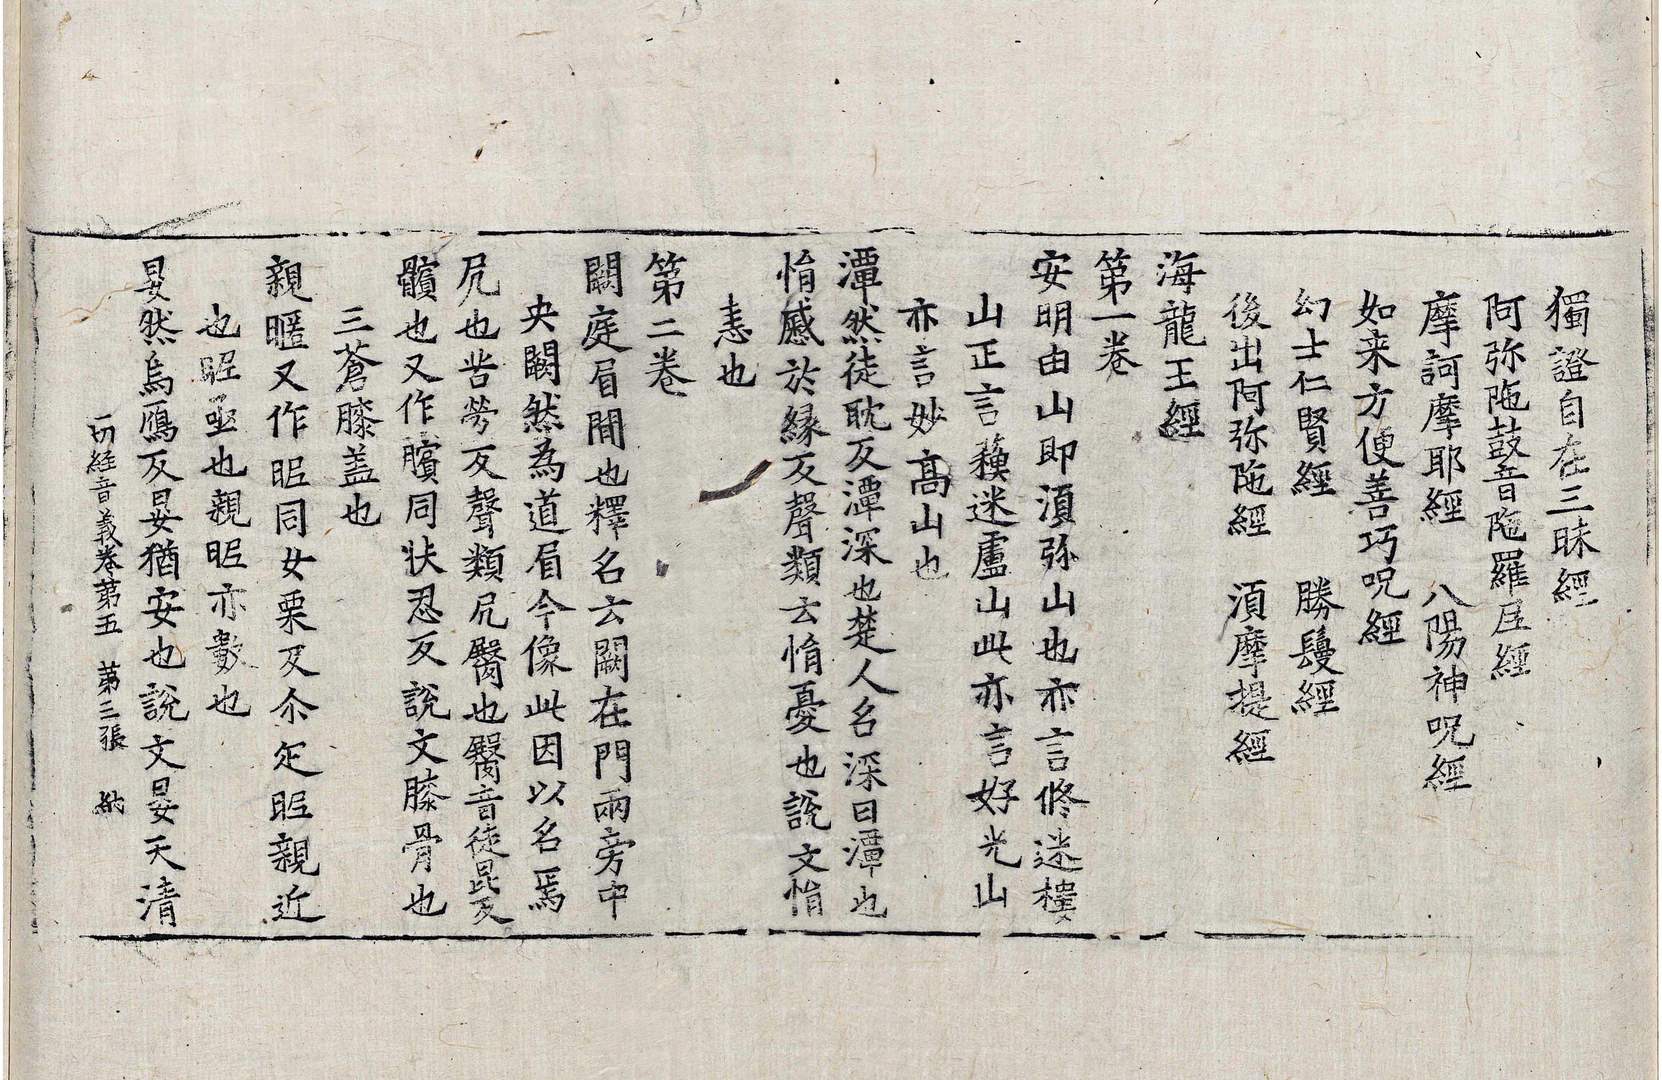 獨證自在三昧經
阿弥陁鼓音陁羅尼經
摩訶摩耶經　八陽神呪經
如来方便善巧呪經
幻士仁賢經　勝鬘經
後出阿弥陁經　湏摩提經
海龍王經
第一卷
安明由山即湏弥山也亦言修迷樓
山正言蘓迷盧山此亦言好光山
亦言妙高山也
潭然徒耽反潭深也楚人名深曰潭也
悁慼於縁反聲類云悁憂也說文悁
恚也
第二卷
闕庭眉間也釋名云闕在門兩旁中
央闕然為道眉今像此因以名焉
尻也苦勞反聲類尻臋也臋音徒昆反
髕也又作臏同扶忍反說文膝骨也
三蒼膝盖也
親暱又作昵同女栗反尒疋昵親近
也昵亟也親昵亦數也
晏然烏鴈反晏猶安也說文晏天清
一切經音義卷第五　第三張